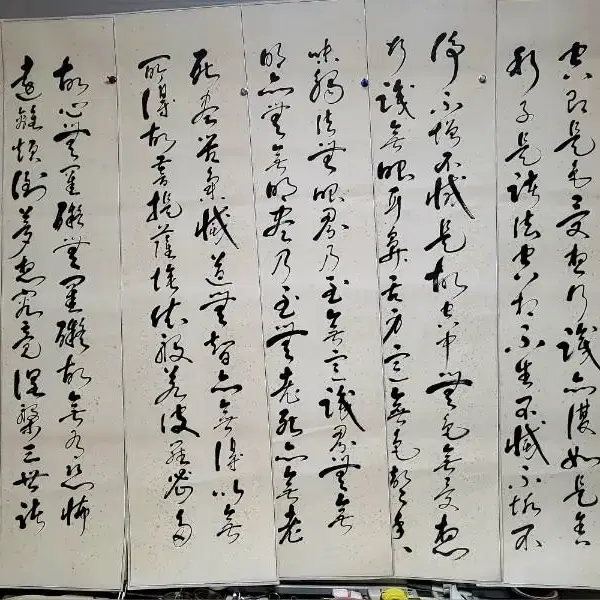 空即是色受想行識亦復如是舍
利子是諸法空相不生不滅不垢不
淨不增不減是故空中無色無受想
行識無眼耳鼻舌身意無色聲香
味觸法無眼界乃至無意識界無無
明亦無無明盡乃至無老死亦無老
死盡苦集滅道無智亦無得以無
所得故菩提薩埵依般若波羅蜜多
故心無罣礙無罣礙故無有恐怖
遠離顛倒夢想究竟涅槃三世諸